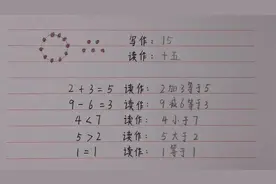 写作：15
读作：十五
2+3=5 读作：2加3等于5
9-6=3 读作：9减6等于3
4<7 读作：4小于7
5>2 读作：5大于2
1=1 读作：1等于1